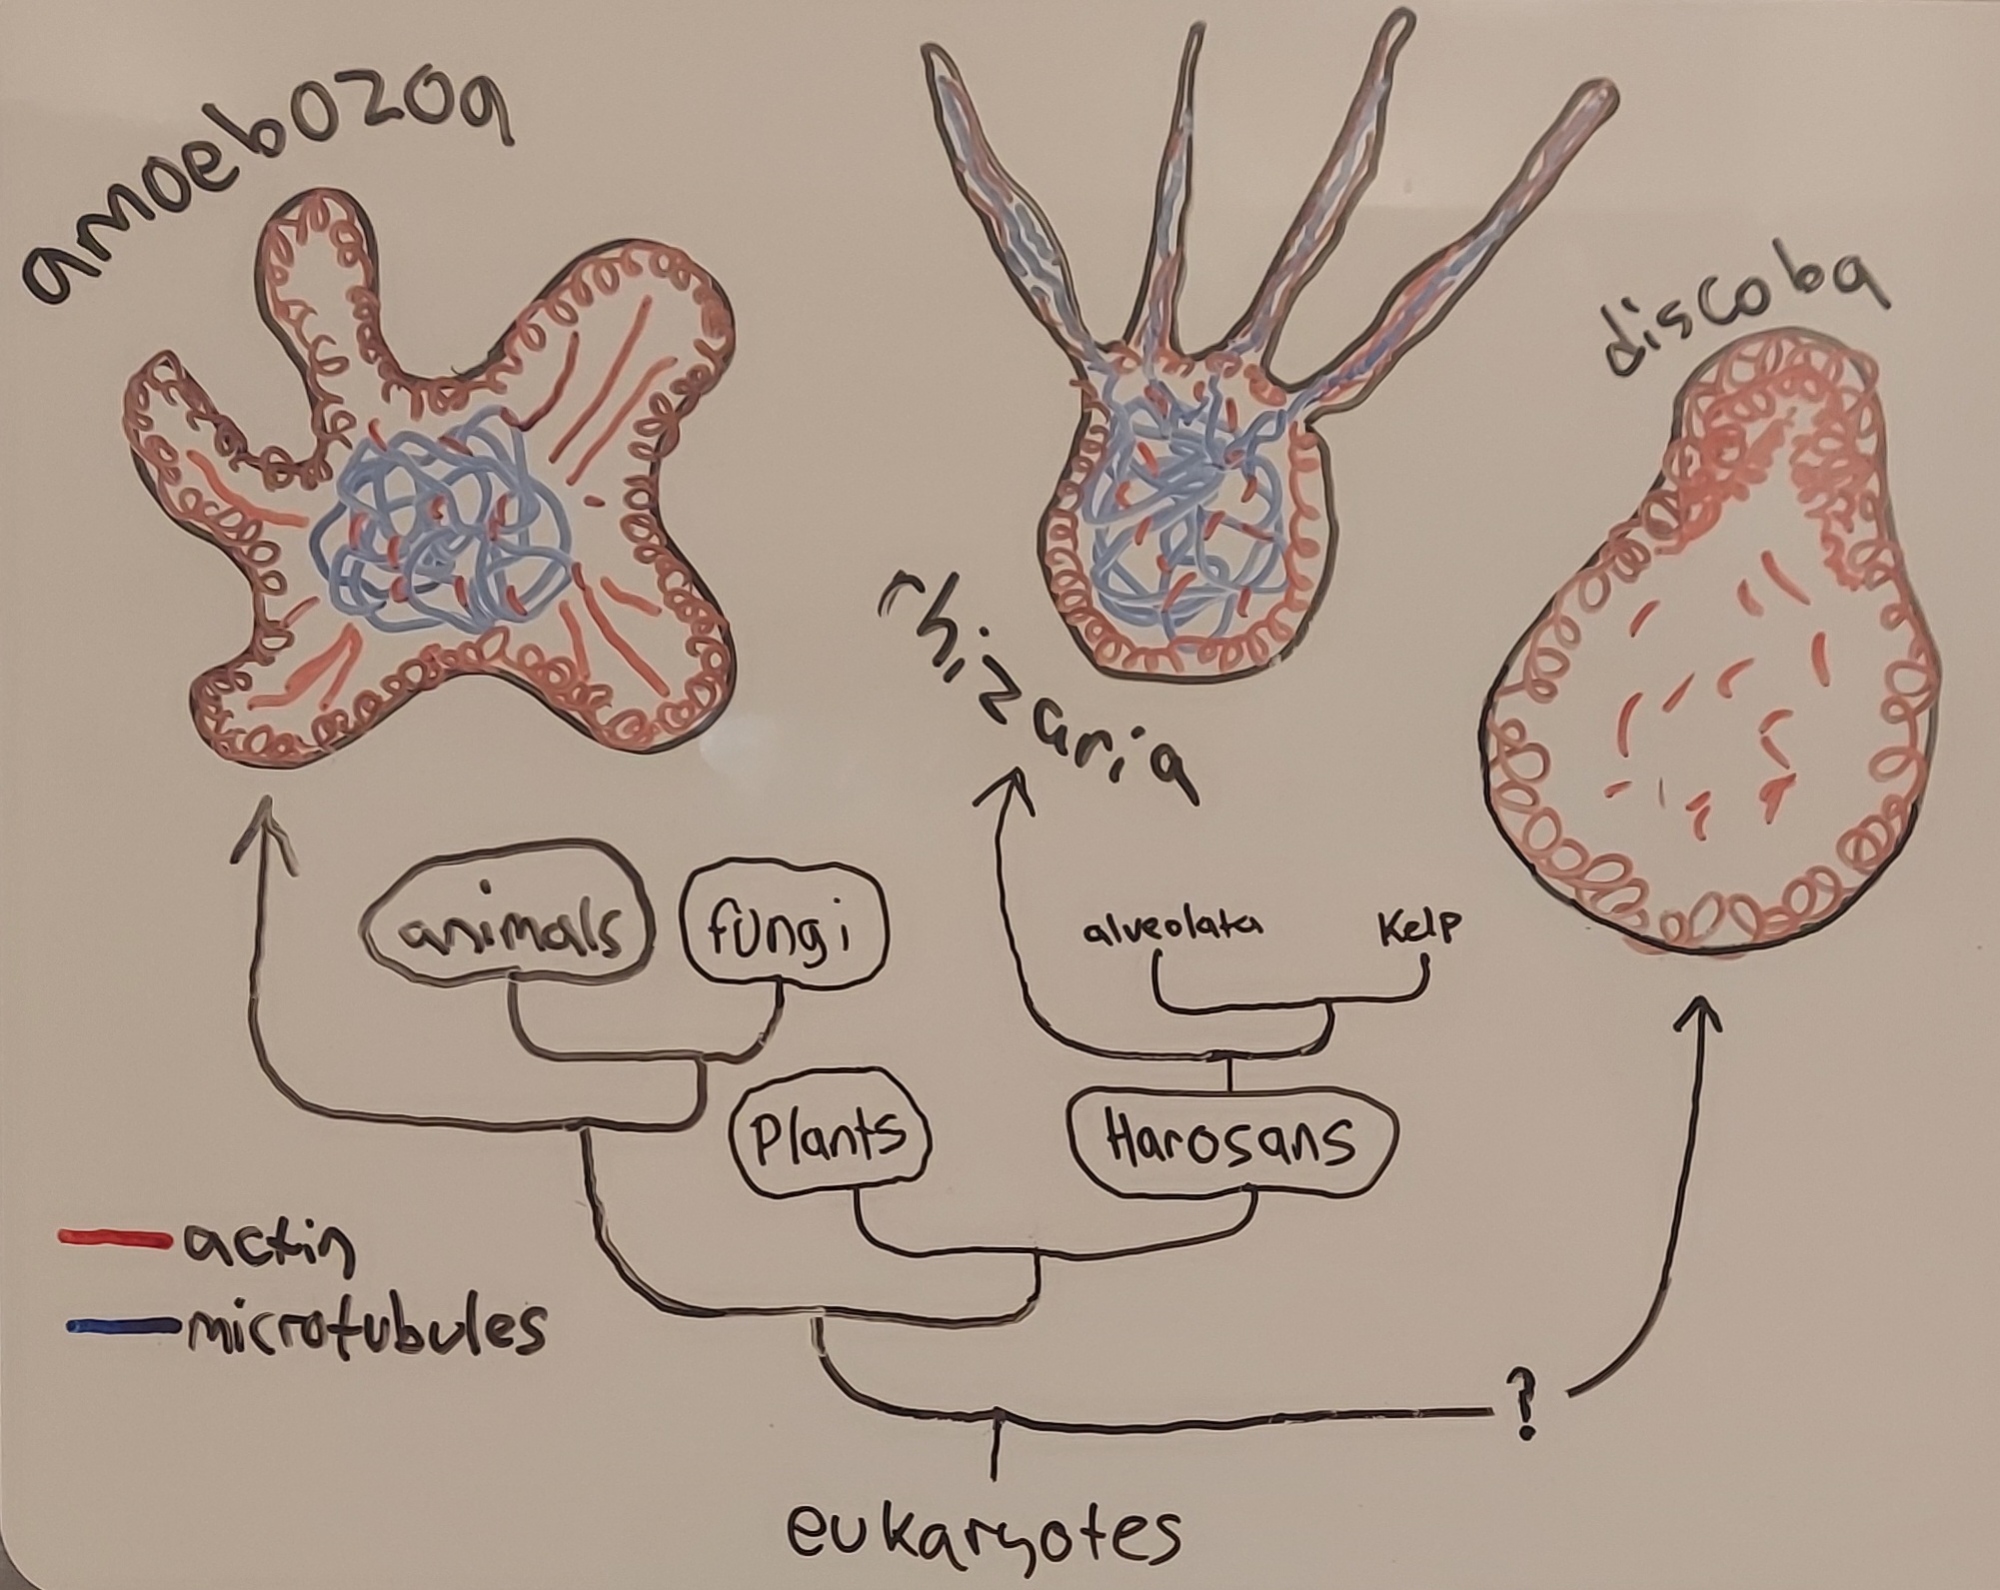 amoebozoa
rhizaria
discoba
animals
fungi
alveolata
Kelp
Plants
Harosans
actin
microtubules
?
eukaryotes